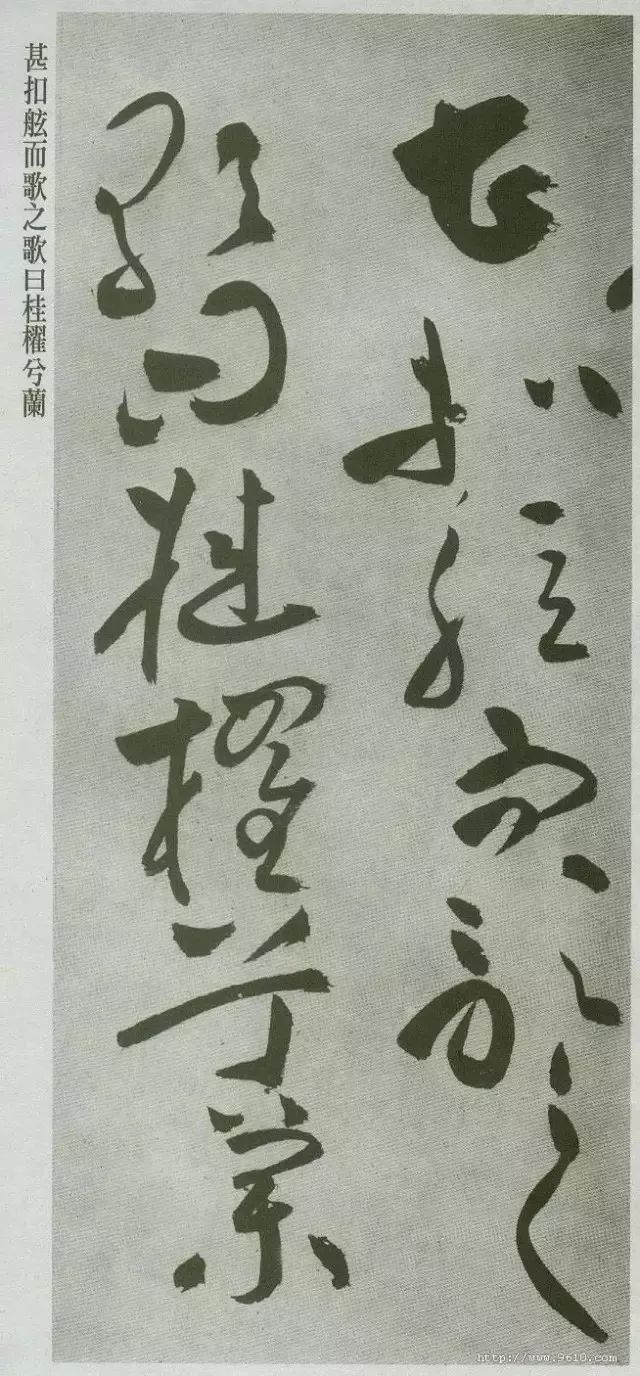 甚扣舷而歌之
歌曰桂櫂兮蘭
甚扣舷而歌之歌曰桂櫂兮蘭
http://www.9610.com